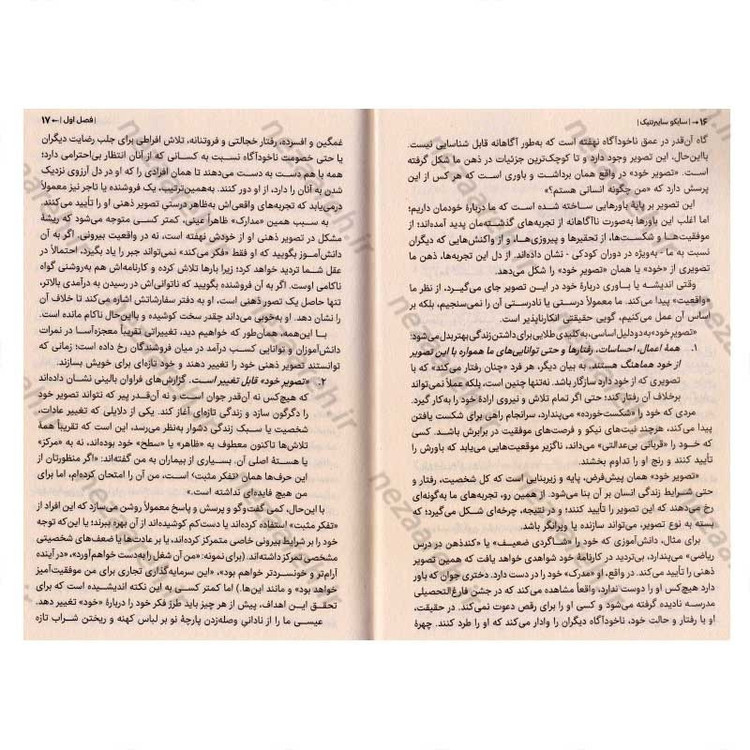 ۱۶ → | سایکو سایبرنتیک |
گاه آن‌قدر در عمق ناخودآگاه نهفته است که به‌طور آگاهانه قابل شناسایی نیست.
بااین‌حال، این تصویر وجود دارد و تا کوچک‌ترین جزئیات در ذهن ما شکل گرفته
است. «تصویر خود» در واقع همان برداشت و باوری است که هر کس از این
پرسش دارد که «من چگونه انسانی هستم؟»
این تصویر بر پایهٔ باورهایی ساخته شده است که ما دربارهٔ خودمان داریم؛
اما اغلب این باورها به‌صورت ناآگاهانه از تجربه‌های گذشته‌مان پدید آمده‌اند؛ از
موفقیت‌ها و شکست‌ها، از تحقیرها و پیروزی‌ها، و از واکنش‌هایی که دیگران
نسبت به ما - به‌ویژه در دوران کودکی - نشان داده‌اند. از دل این تجربه‌ها، ذهن ما
تصویری از «خود» یا همان «تصویر خود» را شکل می‌دهد.
وقتی اندیشه یا باوری دربارهٔ خود در این تصویر جای می‌گیرد، از نظر ما
«واقعیت» پیدا می‌کند. ما معمولاً درستی یا نادرستی آن را نمی‌سنجیم، بلکه بر
اساس آن عمل می‌کنیم، گویی حقیقتی انکارناپذیر است.
«تصویر خود» به دو دلیل اساسی، به کلیدی طلایی برای داشتن زندگی بهتر بدل می‌شود:
۱. همهٔ اعمال، احساسات، رفتارها و حتی توانایی‌های ما همواره با این تصویر
از خود هماهنگ هستند. به بیان دیگر، هر فرد «چنان رفتار می‌کند» که با
تصویری که از خود دارد سازگار باشد. نه‌تنها چنین است، بلکه عملاً نمی‌تواند
برخلاف آن رفتار کند؛ حتی اگر تمام تلاش و نیروی ارادهٔ خود را به‌کار گیرد.
مردی که خود را «شکست‌خورده» می‌پندارد، سرانجام راهی برای شکست یافتن
پیدا می‌کند، هرچند نیت‌های نیکو و فرصت‌های موفقیت در برابرش باشد. کسی
که خود را «قربانی بی‌عدالتی» می‌داند، ناگزیر موقعیت‌هایی می‌یابد که باورش را
تأیید کنند و رنج او را تداوم بخشند.
«تصویر خود» همان پیش‌فرض، پایه و زیربنایی است که کل شخصیت، رفتار و
حتی شرایط زندگی انسان بر آن بنا می‌شود. از همین رو، تجربه‌های ما به‌گونه‌ای
رخ می‌دهند که این تصویر را تأیید کنند؛ و در نتیجه، چرخه‌ای شکل می‌گیرد؛ که
بسته به نوع تصویر، می‌تواند سازنده یا ویرانگر باشد.
برای مثال، دانش‌آموزی که خود را «شاگردی ضعیف» یا «کندذهن در درس
ریاضی» می‌پندارد، بی‌تردید در کارنامهٔ خود شواهدی خواهد یافت که همین تصویر
ذهنی را تأیید می‌کند. در واقع، او «مدرک» خود را در دست دارد. دختری جوان که باور
دارد هیچ‌کس او را دوست ندارد، واقعاً مشاهده می‌کند که در جشن فارغ‌التحصیلی
مدرسه نادیده گرفته می‌شود و کسی او را برای رقص دعوت نمی‌کند. در حقیقت،
او با رفتار و حالت خود، ناخودآگاه دیگران را وادار می‌کند که او را طرد کنند. چهرهٔ
| فصل اول | ← ۱۷
غمگین و افسرده، رفتار خجالتی و فروتنانه، تلاش افراطی برای جلب رضایت دیگران
یا حتی خصومت ناخودآگاه نسبت به کسانی که از آنان انتظار بی‌احترامی دارد؛
همه با هم دست به دست می‌دهند تا همان افرادی را که او در دل آرزوی نزدیک
شدن به آنان را دارد، از او دور کنند. به‌همین‌ترتیب، یک فروشنده یا تاجر نیز معمولاً
درمی‌یابد که تجربه‌های واقعی‌اش به‌ظاهر درستی تصویر ذهنی او را تأیید می‌کنند.
به سبب همین «مدارک» ظاهراً عینی، کمتر کسی متوجه می‌شود که ریشهٔ
مشکل در تصویر ذهنی او از خودش نهفته است، نه در واقعیت بیرونی. اگر به آن
دانش‌آموز بگویید که او فقط «فکر می‌کند» نمی‌تواند جبر را یاد بگیرد، احتمالاً در
عقل شما تردید خواهد کرد؛ زیرا بارها تلاش کرده و کارنامه‌اش هم به‌روشنی گواه
ناکامی اوست. اگر به آن فروشنده بگویید که ناتوانی‌اش در رسیدن به درآمدی بالاتر،
تنها حاصل یک تصور ذهنی است، او به دفتر سفارشاتش اشاره می‌کند تا خلاف آن
را نشان دهد. او به‌خوبی می‌داند چقدر سخت کوشیده و بااین‌حال ناکام مانده است.
با این‌همه، همان‌طور که خواهیم دید، تغییراتی تقریباً معجزه‌آسا در نمرات
دانش‌آموزان و توانایی کسب درآمد در میان فروشندگان رخ داده است؛ زمانی که
توانستند تصویر ذهنی خود را تغییر دهند و خود تازه‌ای برای خویش بسازند.
۲. «تصویر خود» قابل تغییر است. گزارش‌های فراوان بالینی نشان داده‌اند
که هیچ‌کس نه آن‌قدر جوان است و نه آن‌قدر پیر که نتواند تصویر خود
را دگرگون سازد و زندگی تازه‌ای آغاز کند. یکی از دلایلی که تغییر عادات،
شخصیت یا سبک زندگی دشوار به‌نظر می‌رسد، این است که تقریباً همهٔ
تلاش‌ها تاکنون معطوف به «ظاهر» یا «سطح» خود بوده‌اند، نه به «مرکز»
یا هستهٔ اصلی آن. بسیاری از بیماران به من گفته‌اند: «اگر منظورتان از
این حرف‌ها همان ‹تفکر مثبت› است، من آن را امتحان کرده‌ام، اما برای
من هیچ فایده‌ای نداشته است.»
با این‌حال، کمی گفت‌وگو و پرسش و پاسخ معمولاً روشن می‌سازد که این افراد از
«تفکر مثبت» استفاده کرده‌اند یا دست‌کم کوشیده‌اند از آن بهره ببرند؛ یا این‌که توجه
خود را بر شرایط بیرونی خاصی متمرکز کرده‌اند، یا بر عادت‌ها یا ضعف‌های شخصیتی
مشخصی تمرکز داشته‌اند. (برای نمونه: «من آن شغل را به‌دست خواهم آورد»، «در آینده
آرام‌تر و خونسردتر خواهم بود»، «این سرمایه‌گذاری تجاری برای من موفقیت‌آمیز
خواهد بود» و مانند این‌ها.) اما کمتر کسی به این نکته اندیشیده است که برای
تحقق این اهداف، پیش از هر چیز باید طرز فکر خود را دربارهٔ «خود» تغییر دهد.
عیسی ما را از نادانیِ وصله‌زدن پارچهٔ نو بر لباس کهنه و ریختن شراب تازه
nezaamh.ir